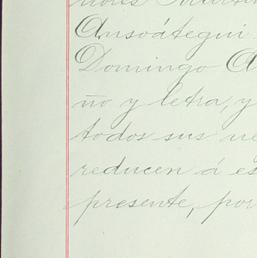 Ansoátegui
Domingo A
ño y letra, y
todos sus ne
reducen á es
presente, por